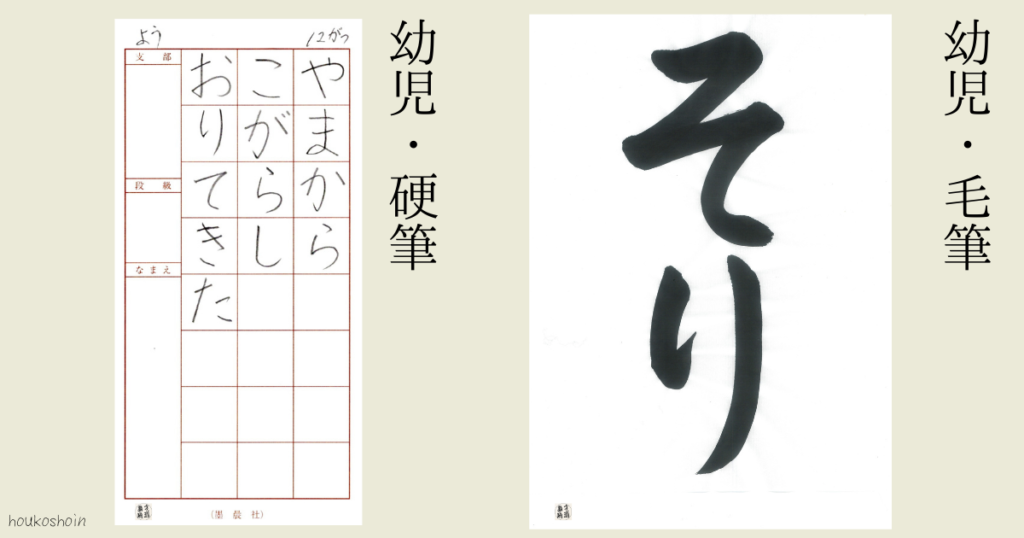 幼児・毛筆
そり
幼児・硬筆
よう
12がつ
やまから
こがらし
おりてきた
支部
段級
なまえ
(墨晨社)
houkoshoin